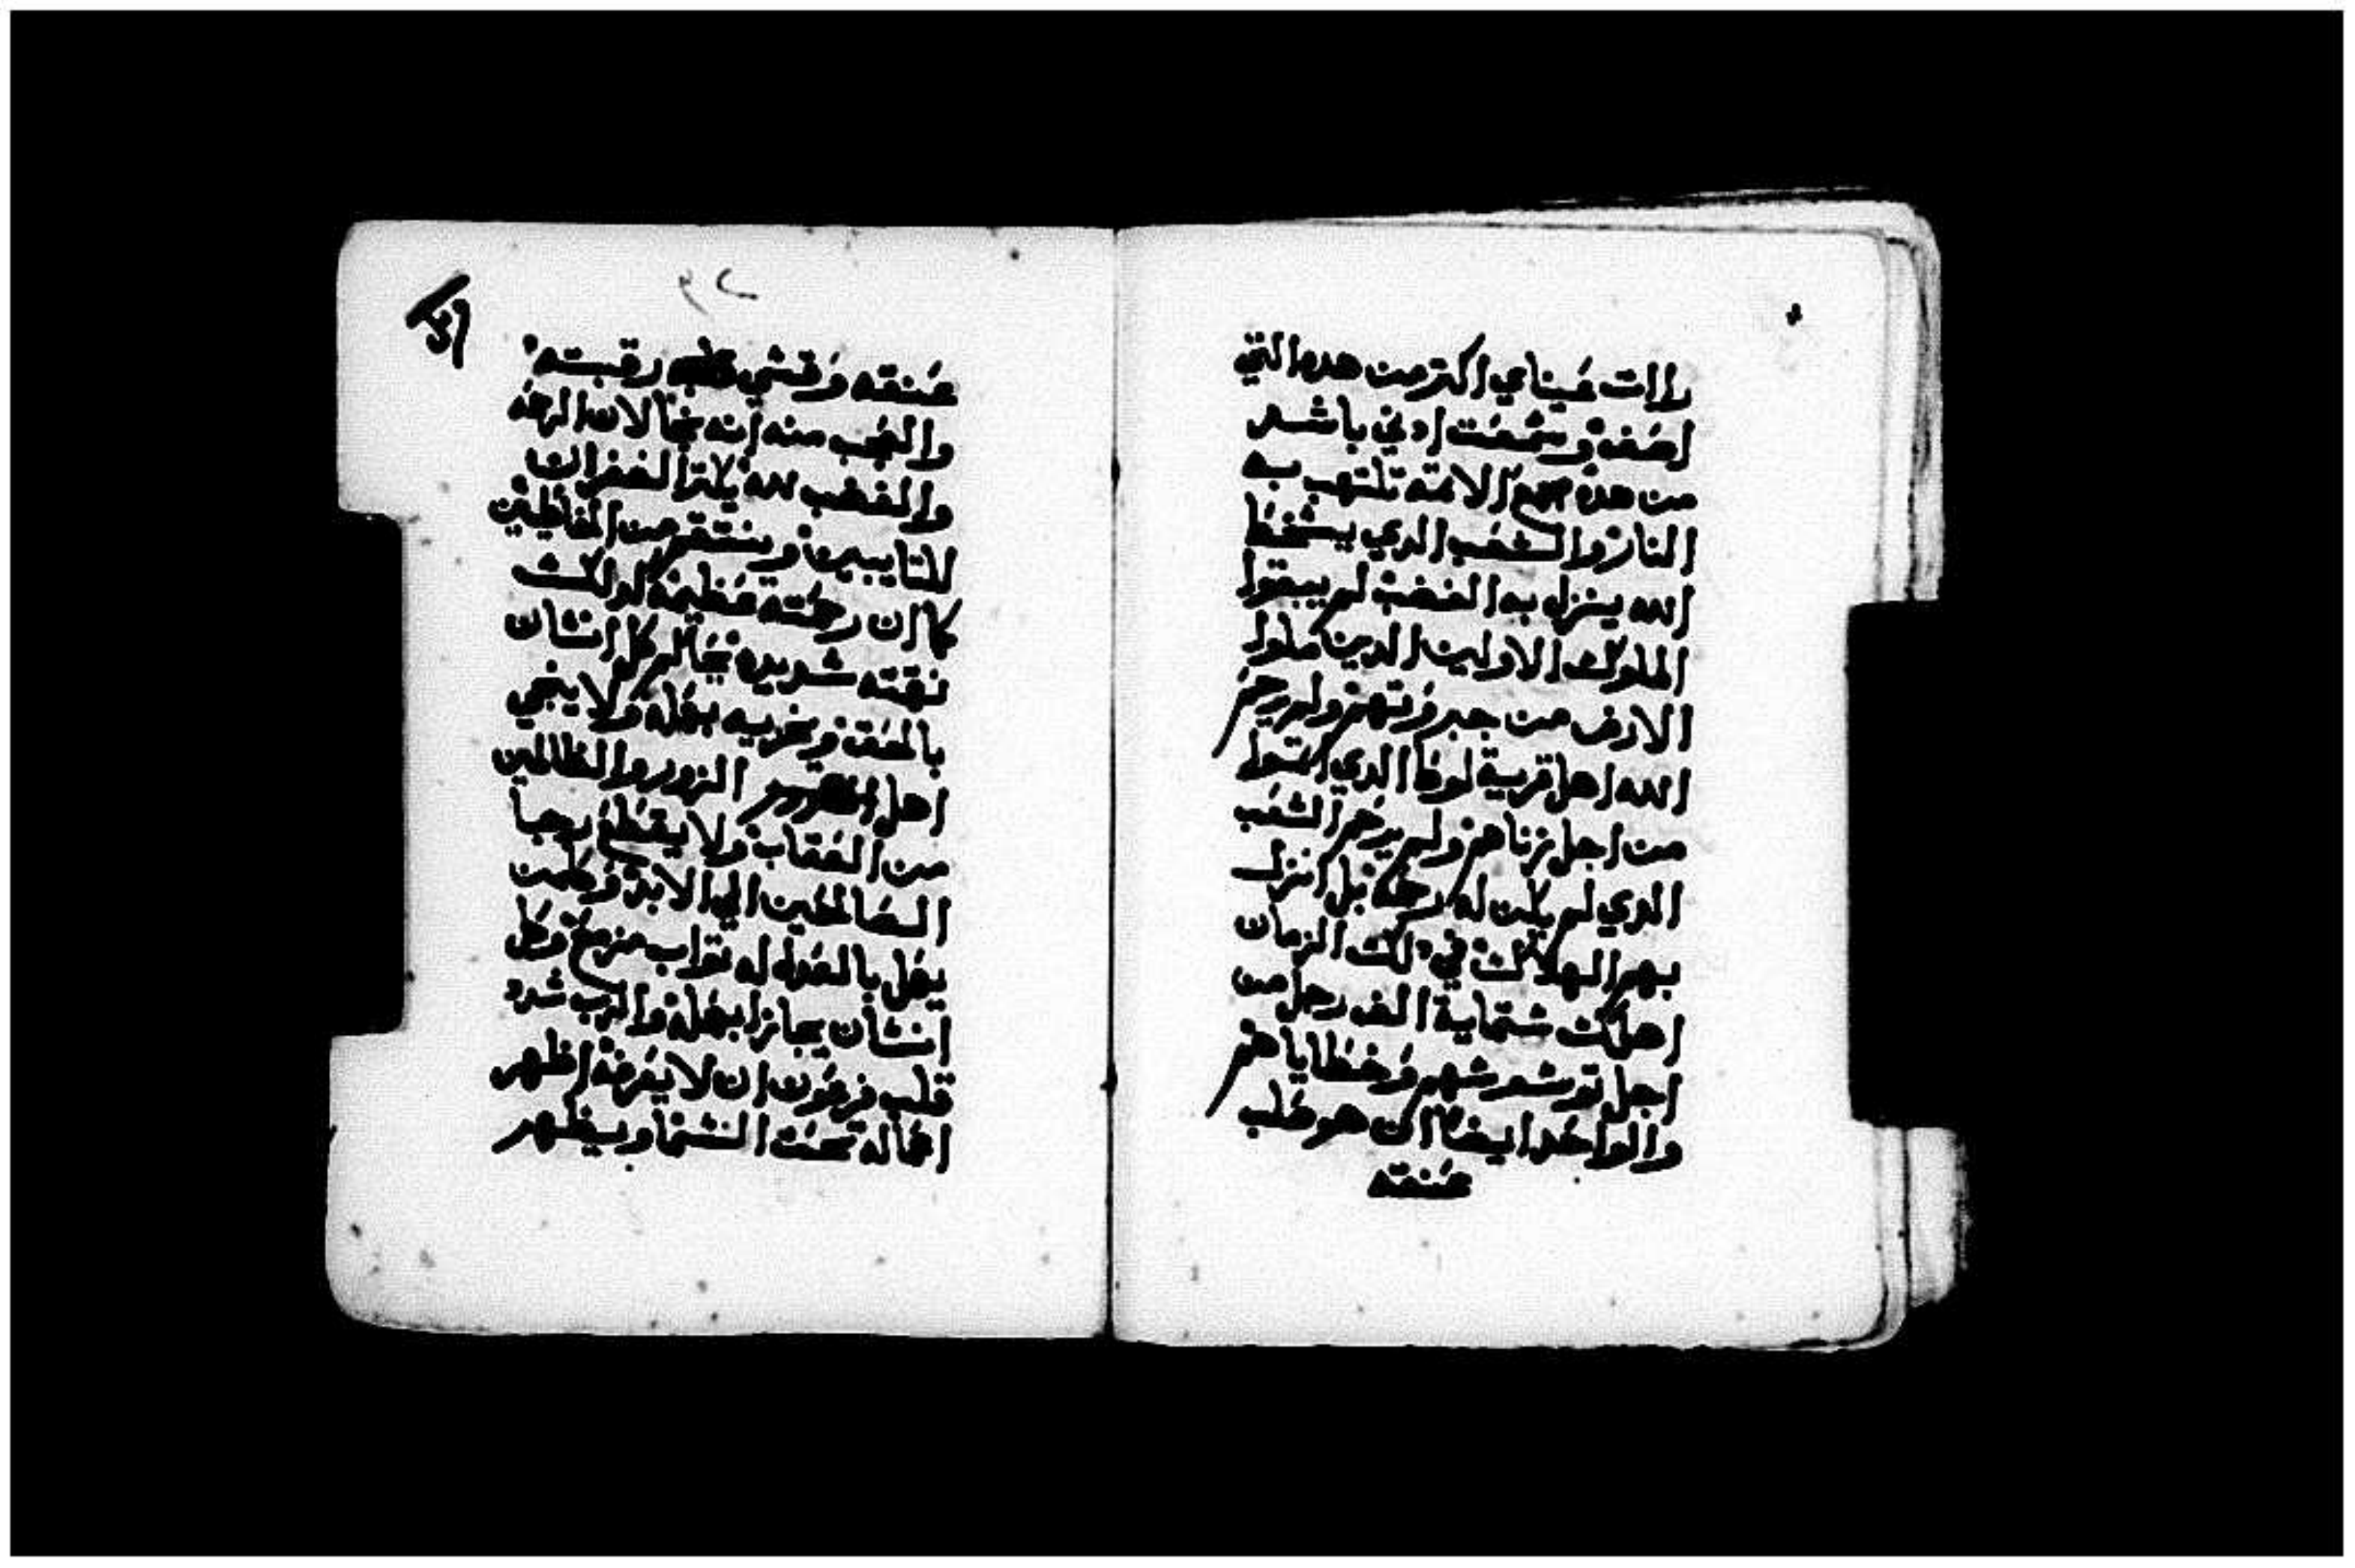 راات عيناي اكتر من هده التي
اصف وسمعت ادني باشد
من هده مجمع الائمة تلتهب به
النار والشعب الدي يسخط
الله ينزل به الغضب لم يبقوا
الملوك الاولين الدين ملوا
الارض من جبروتهم ولم يرحم
الله اهل قرية لوط الدي
من اجل زناهم ولم يرحم الشعب
الدي لم يكن له رحمة بل انزل
بهم الهلاك في دلك الزمان
اهلك ستماية الف رجل من
اجل شرهم وخطاياهم
والواحد ايضا ان هو صلب
عنقه
عنقه وقسي رقبته
والعجب منه انه نجا لان الرحمه
والغضب لله يكتر الغفران
للتايبين وينتقم من الخاطيين
كما ان رحمته عظيمة كدلك
نقمته شديده يحاكم كل انسان
بالحق ويجزيه بعمله ولا ينجي
اهل الزور والظالمين
من العقاب ولا يقطع رجا
الصالحين الي الابد وكلمن
يعمل بالعدل له تواب مزمع وكل
انسان يجازا بعمله والرب شدد
قلب فرعون ان لا يعرفه اظهر
اعماله تحت السما ويظهر